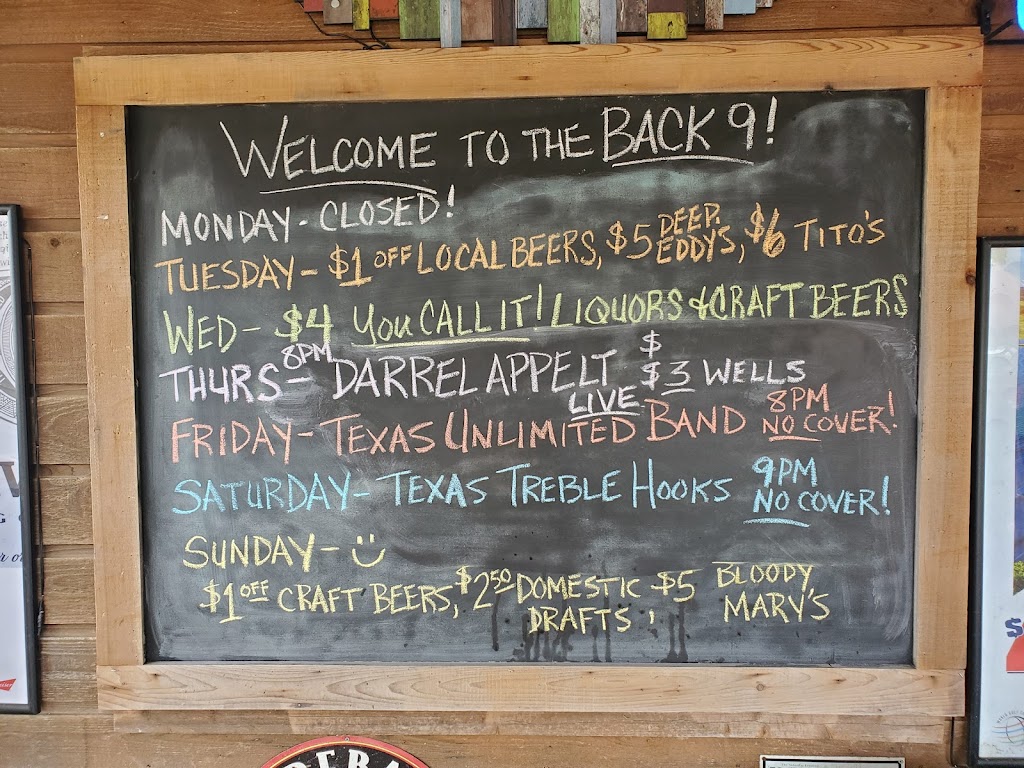 WELCOME TO THE BACK 9!
MONDAY - CLOSED!
TUESDAY - $1 OFF LOCAL BEERS, $5 DEEP EDDY'S, $6 TITO'S
WED - $4 YOU CALL IT! LIQUORS & CRAFT BEERS
THURS - 8PM DARREL APPELT LIVE $ $3 WELLS
FRIDAY - TEXAS UNLIMITED BAND 8PM NO COVER!
SATURDAY - TEXAS TREBLE HOOKS 9PM NO COVER!
SUNDAY -
$1 OFF CRAFT BEERS, $2.50 DOMESTIC DRAFTS, $5 BLOODY MARY'S